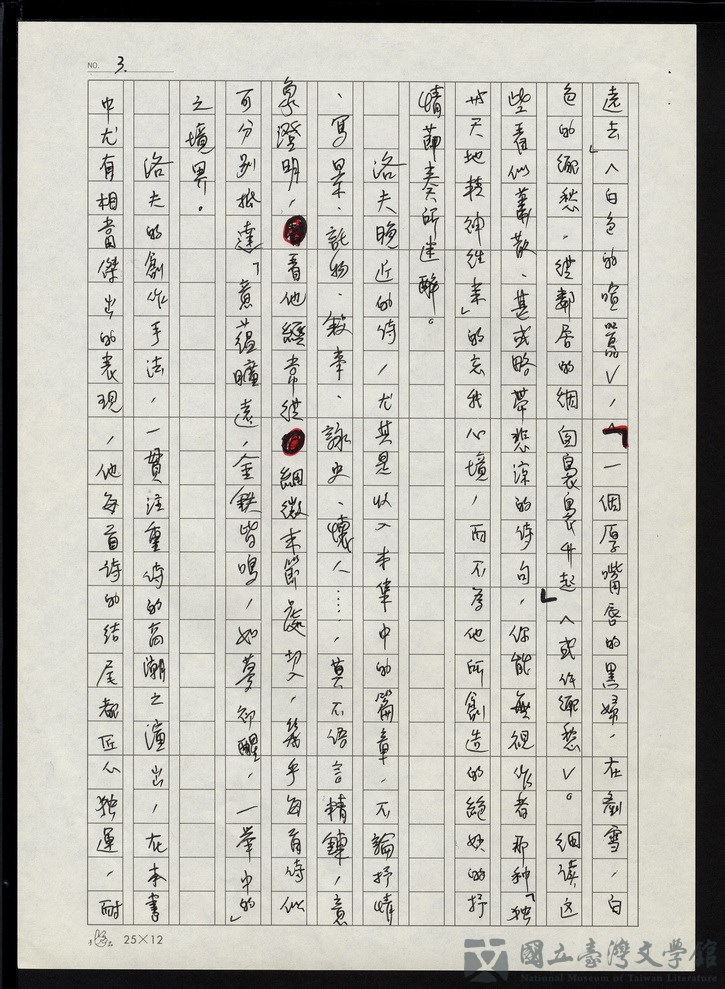 NO. 3.
遠去」〈白色的喧囂〉,「一個厚嘴唇的黑婦,在剷雪,白
色的鄉愁,從鄰居的烟囪裊裊升起」〈或作鄉愁〉。細讀這
些看似蕭散、甚或略帶悲涼的詩句,你能無視作者那種「獨
與天地精神往來」的忘我心境,而不為他所創造的絕妙的抒
情節奏所迷醉。
洛夫晚近的詩,尤其是收入本集中的篇章,不論抒情
、寫景、託物、敘事、詠史、懷人……,莫不語言精鍊,意
象澄明,看他經常從細微末節處切入,幾乎每首詩似
可分別抵達「意蘊曠遠,金鐵皆鳴,如夢初醒,一舉中的」
之境界。
洛夫的創作手法,一貫注重詩的高潮之演出,在本書
中尤有相當傑出的表現,他每首詩的結尾都匠心獨運,耐
25×12
國立臺灣文學館
National Museum of Taiwan Literature